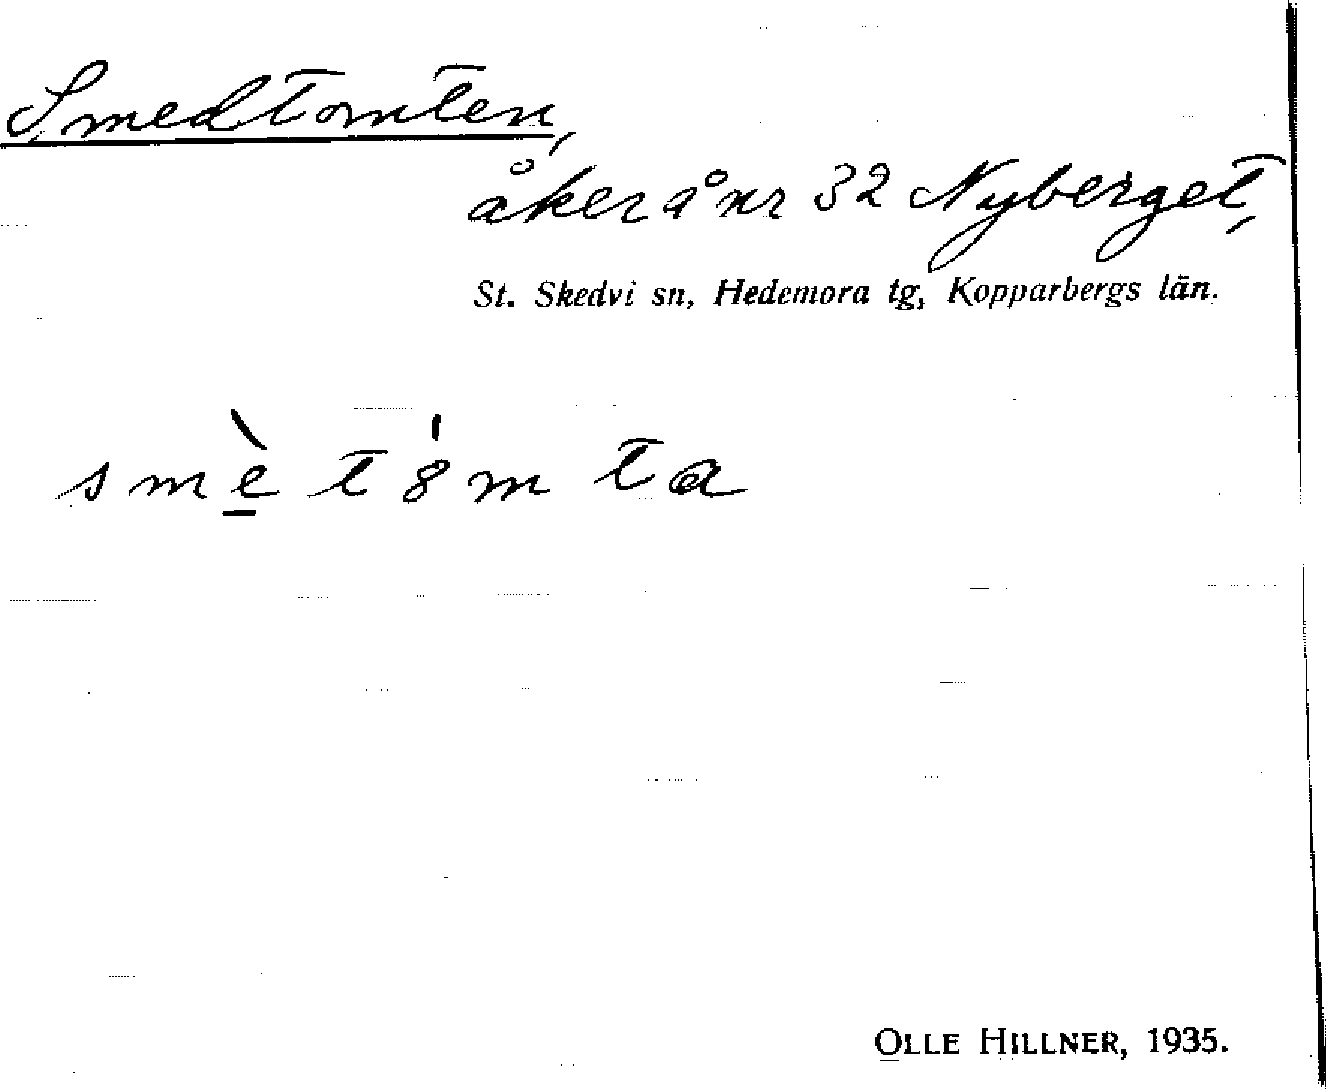 Smedtomten,
åker å nr 32 Nyberget,
St. Skedvi sn, Hedemora tg, Kopparbergs län.
smè̠ t8̍m ta
OLLE HILLNER, 1935.